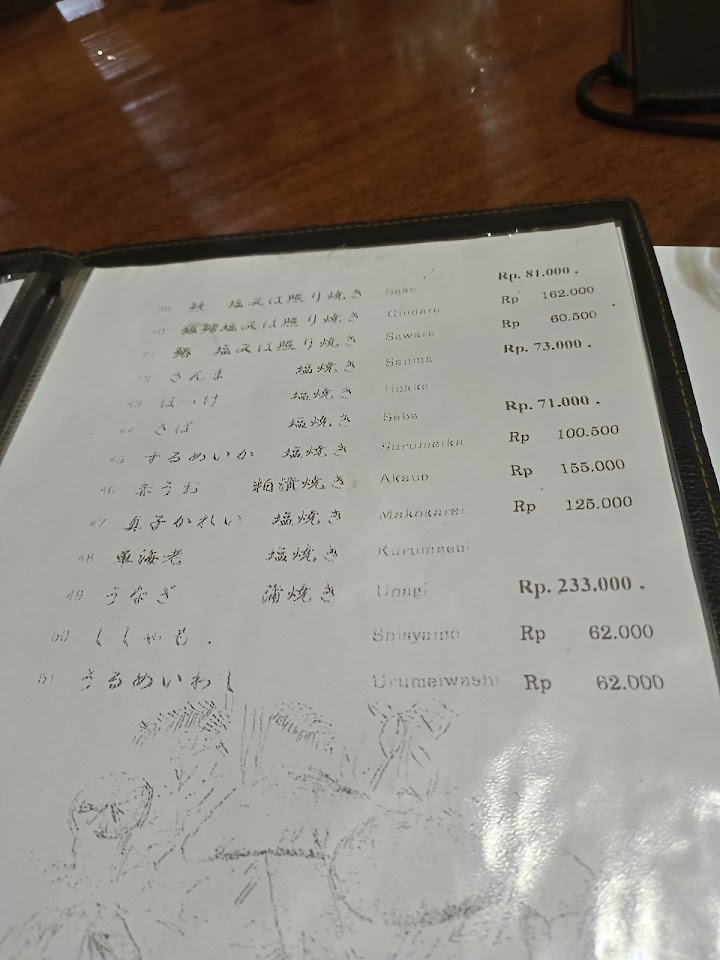 39 鮭 塩又は照り焼き Sake Rp. 81.000 .
40 銀鱈塩又は照り焼き Gindara Rp 162.000
41 鰆 塩又は照り焼き Sawara Rp 60.500
42 さんま 塩焼き Sanma Rp. 73.000 .
43 ほっけ 塩焼き Hokke
44 さば 塩焼き Saba Rp. 71.000 .
45 するめいか 塩焼き Surumeika Rp 100.500
46 赤うお 粕漬焼き Akauo Rp 155.000
47 真子かれい 塩焼き Makokarei Rp 125.000
48 車海老 塩焼き Kurumaebi
49 うなぎ 蒲焼き Unagi Rp. 233.000 .
50 ししゃも . Shisyamo Rp 62.000
51 うるめいわし Urumeiwashi Rp 62.000